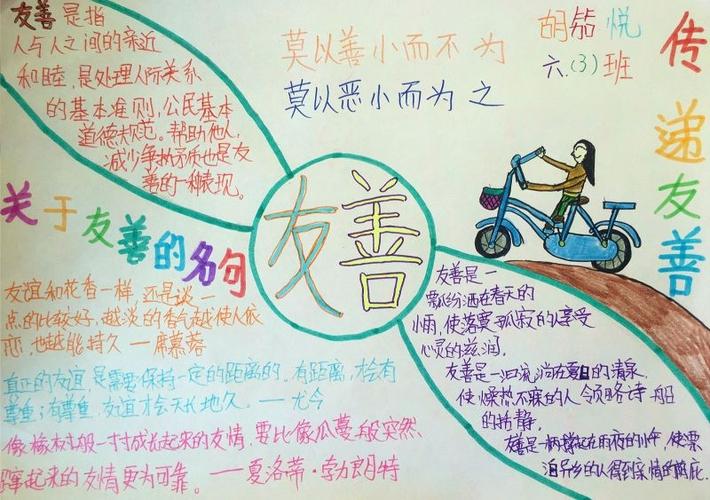 友善是指
人与人之间的亲近
和睦,是处理人际关系
的基本准则,公民基本
道德规范。帮助他人,
减少争执矛盾也是友
善的一种表现。
莫以善小而不为
莫以恶小而为之
胡 悦
六.(3)班
传递友善
友善
关于友善的名句
友谊和花香一样,还是谈一
点的比较好,越淡的香气越使人依
恋,也越能持久—席慕蓉
真正的友谊是需要保持一定的距离的。有距离,才会有
尊重;有尊重,友谊才会天长地久。——尤今
像橡树般一寸寸成长起来的友情,要比像瓜蔓般突然
蹿起来的友情更为可靠。——夏洛蒂·勃朗特
友善是一
飘洒在春天的
小雨,使落寞孤寂的人享受
心灵的滋润。
友善是一泗流淌在夏日的清泉,
使燥热不寐的人领略诗一般
的恬静。
友善是一柄撑起在雨夜的小伞,使漂
泊异乡的人得到亲情的荫庇。